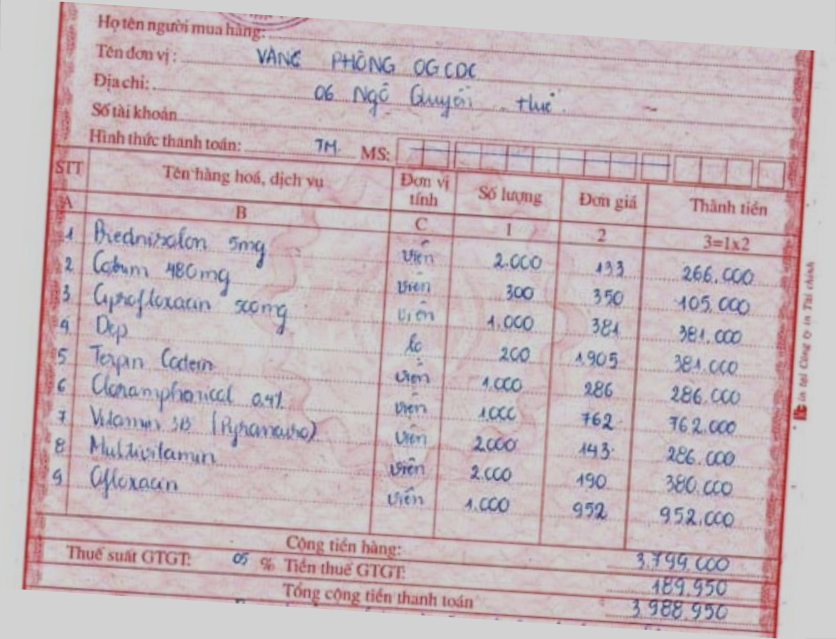 Họ tên người mua hàng:
Tên đơn vị: VĂNG PHÒNG OGCDC
Địa chỉ: 06 Ngô Quyền Huế
Số tài khoản
Hình thức thanh toán: TM MS:
STT Tên hàng hoá, dịch vụ Đơn vị tính Số lượng Đơn giá Thành tiền
A B C 1 2 3=1x2
1 Prednisolon 5mg viên 2.000 133 266.000
2 Cotrim 480mg viên 300 350 105.000
3 Ciprofloxacin 500mg viên 1.000 381 381.000
4 Dep lọ 200 1.905 381.000
5 Terpin Codein viên 1.000 286 286.000
6 Cloramphenical 0.4% viên 1.000 762 762.000
7 Vitamin 3B viên 2.000 143 286.000
8 Multivitamin viên 2.000 190 380.000
9 Ofloxacin viên 1.000 952 952.000
Cộng tiền hàng: 3.799.000
Thuế suất GTGT: 05 % Tiền thuế GTGT: 189.950
Tổng cộng tiền thanh toán 3.988.950
in tại Công ty in Tài chính